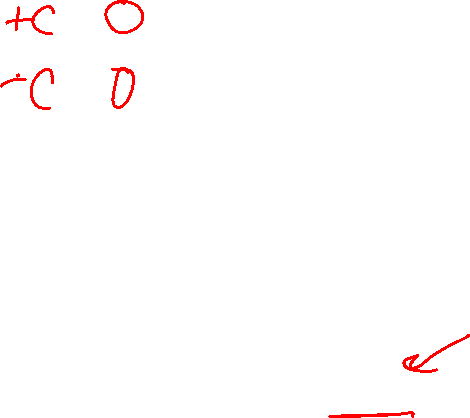 +C O
-C D